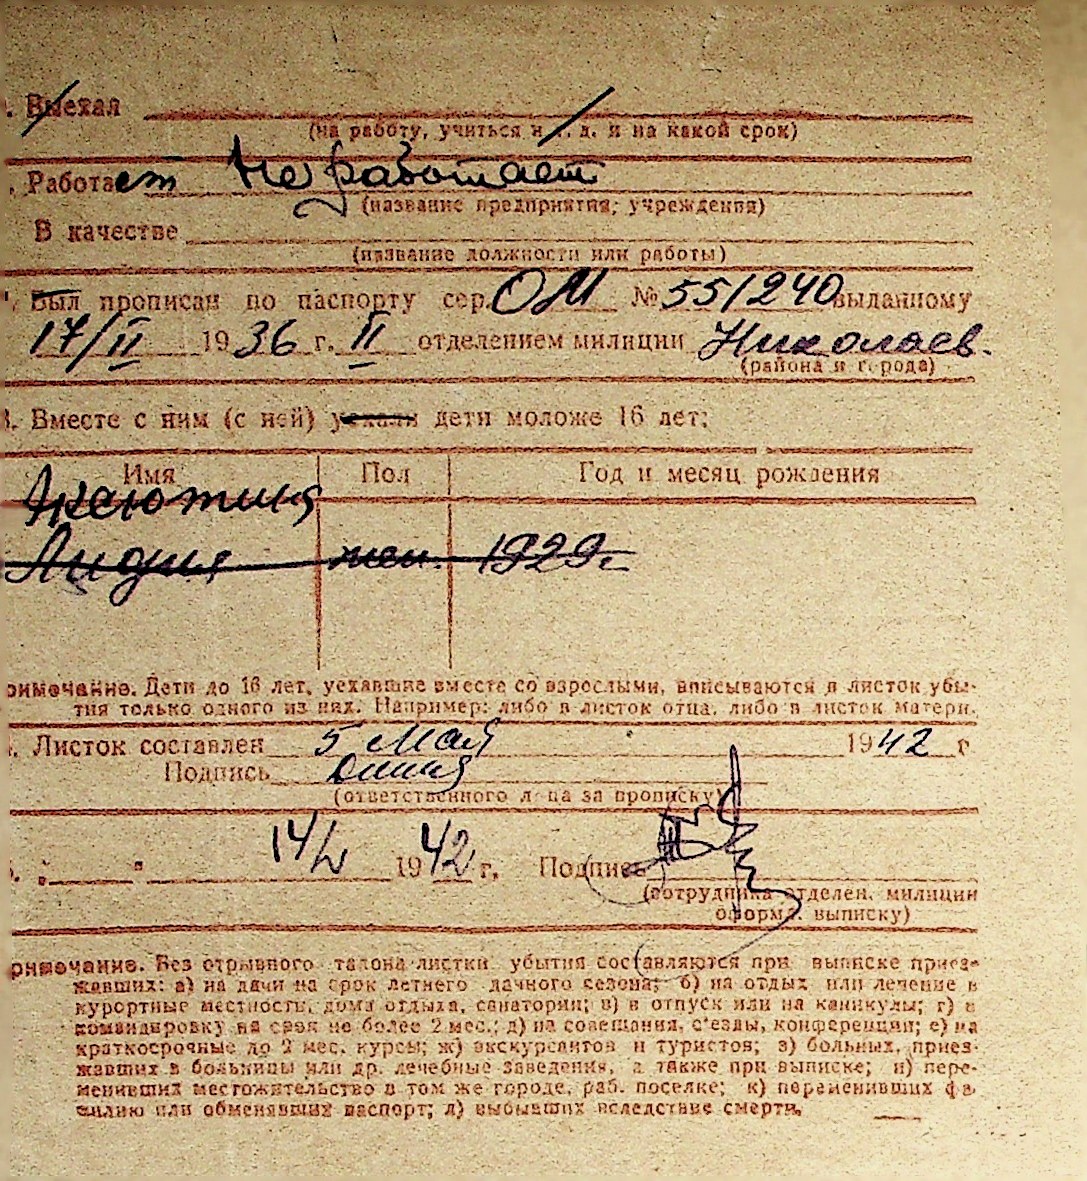 Выехал
(на работу, учиться и т. д. и на какой срок)
Работает Не работает
(название предприятия, учреждения)
В качестве
(название должности или работы)
Был прописан по паспорту сер. ОМ № 551240 выданному
17/II 1936 г. II отделением милиции Николаев.
(района и города)
Вместе с ним (с ней) уехали дети моложе 16 лет:
Имя Пол Год и месяц рождения
Лидия жен. 1929 г.
римечание. Дети до 16 лет, уехавшие вместе со взрослыми, вписываются в листок убы-
тия только одного из них. Например: либо в листок отца, либо в листок матери.
Листок составлен 5 мая 1942 г
Подпись
(ответственного лица за прописку)
" " 14/V 1942 г. Подпись
(сотрудника отделен. милиции
оформ. выписку)
римечание. Без отрывного талона листки убытия составляются при выписке приез-
жавших: а) на дачи на срок летнего дачного сезона; б) на отдых или лечение в
курортные местности, дома отдыха, санатории; в) в отпуск или на каникулы; г) в
командировку на срок не более 2 мес.; д) на совещания, с'езды, конференции; е) на
краткосрочные до 2 мес. курсы; ж) экскурсантов и туристов; з) больных, приез-
жавших в больницы или др. лечебные заведения, а также при выписке; и) пере-
менивших местожительство в том же городе, раб. поселке; к) переменивших фа-
милию или обменявших паспорт; л) выбывших вследствие смерти.